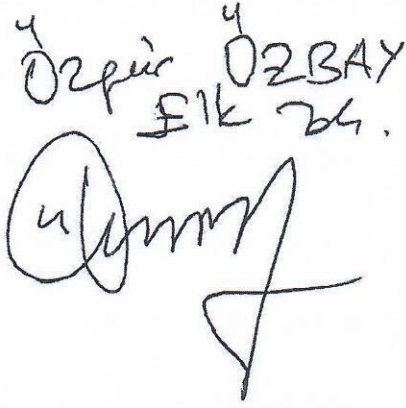 Özgür ÖZBAY
Elk Müh.